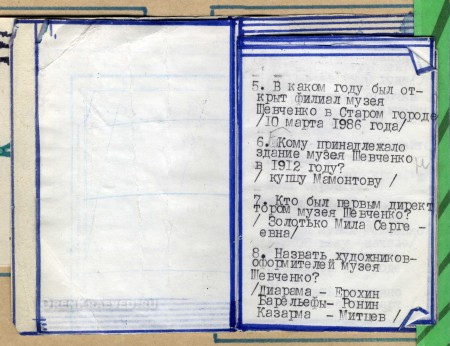 5. В каком году был от-
крыт филиал музея
Шевченко в Старом городе
/10 марта 1986 года/
6. Кому принадлежало
здание музея Шевченко
в 1912 году?
/ купцу Мамонтову /
7. Кто был первым дирек
тором музея Шевченко?
/ Золотько Мила Серге -
евна/
8. Назвать художников-
оформителей музея
Шевченко?
/Диарама - Ерохин
Барельефы- Ронин
Казарма - Митцев /